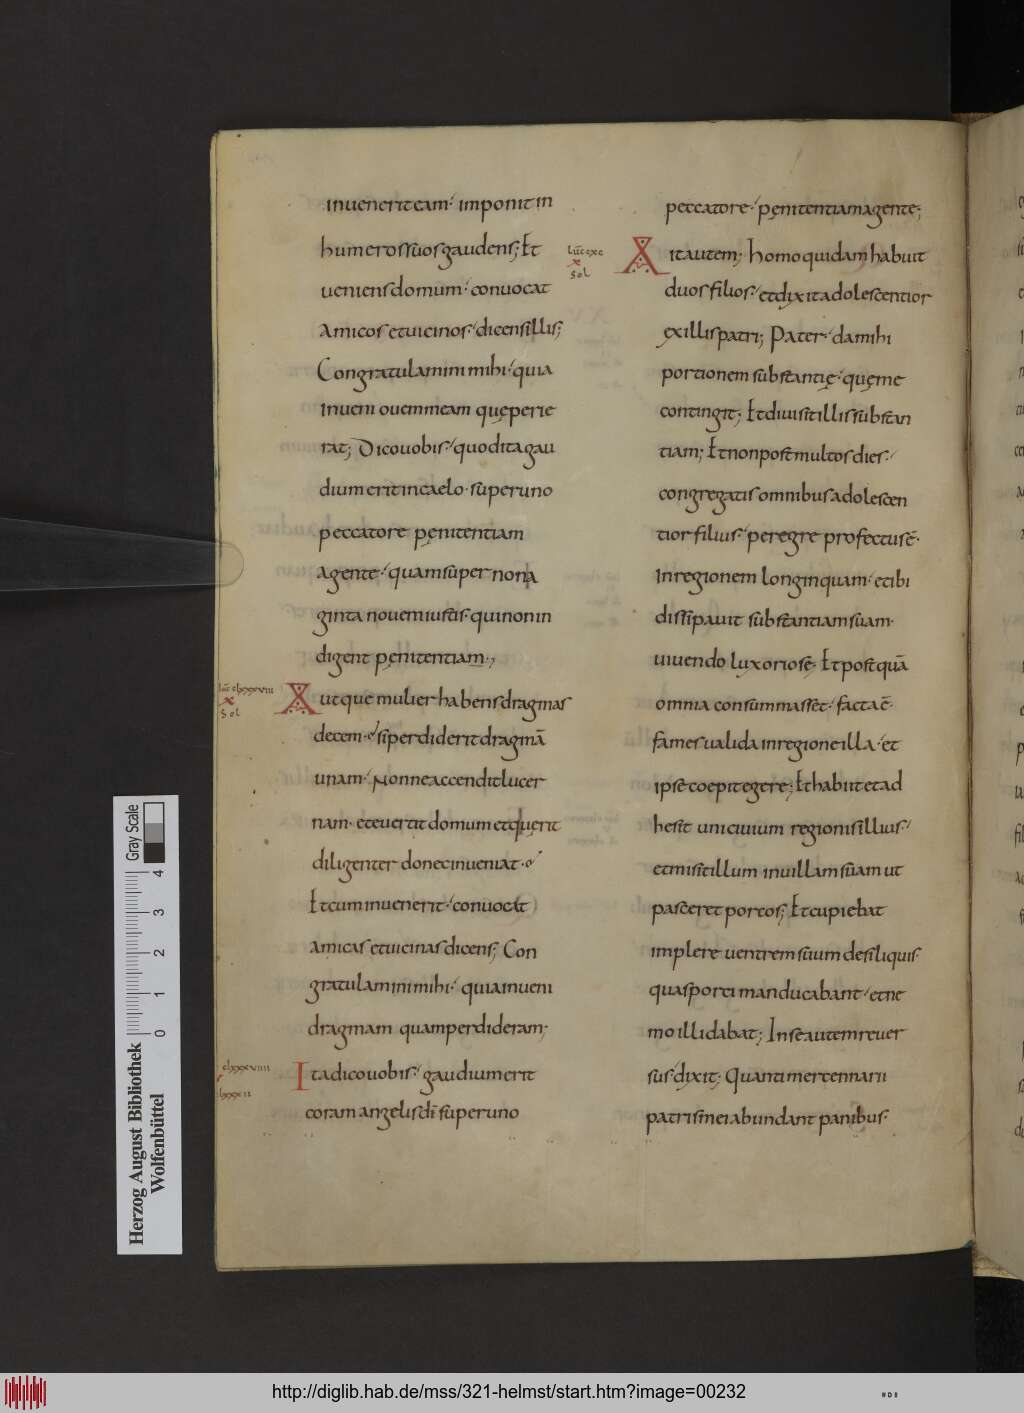 invenerit eam· imponit in
humeros suos gaudens; Et
veniens domum· convocat
Amicos et vicinos· dicens illis;
Congratulamini mihi· quia
inveni ovem meam quę perie
rat; Dico vobis· quod ita gau
dium erit in caelo· super uno
peccatore penitentiam
agente· quam super nona
ginta novem iustis· qui non in
digent penitentiam·,
luc clxxxviii
x
sol
Aut que mulier habens dragmas
decem· & si perdiderit dragmā
unam· Nonne accendit lucer
nam· et evertit domum et quęrit
diligenter donec inveniat·
Et cum invenerit· convocat
amicas et vicinas dicens; Con
gratulamini mihi· quia inveni
dragmam quam perdideram·
clxxxviiii
lxxxii
Ita dico vobis· gaudium erit
coram angelis dī super uno
peccatore· pęnitentiam agente;
luc cxc
x
sol
Ait autem; Homo quidam habuit
duos filios· et dixit adolescentior
ex illis patri; Pater· da mihi
portionem substantię· quę me
contingit; Et divisit illis substan
tiam; Et non post multos dies·
congregatis omnibus adolescen
tior filius· peregre profectus ē·
in regionem longinquam· et ibi
dissipavit substantiam suam·
vivendo luxoriose· Et postquā
omnia consummasset· facta ē·
fames valida in regione illa· et
ipse coepit egere; Et habiit et ad
hesit uni civium regionis illius·
et misit illum in villam suam ut
pasceret porcos; Et cupiebat
implere ventrem suum de siliquis·
quas porci manducabant· et ne
mo illi dabat; In se autem rever
sus· dixit; Quanti mercennarii
patris mei abundant panibus·
Gray Scale
0 1 2 3 4
Herzog August Bibliothek
Wolfenbüttel
http://diglib.hab.de/mss/321-helmst/start.htm?image=00232